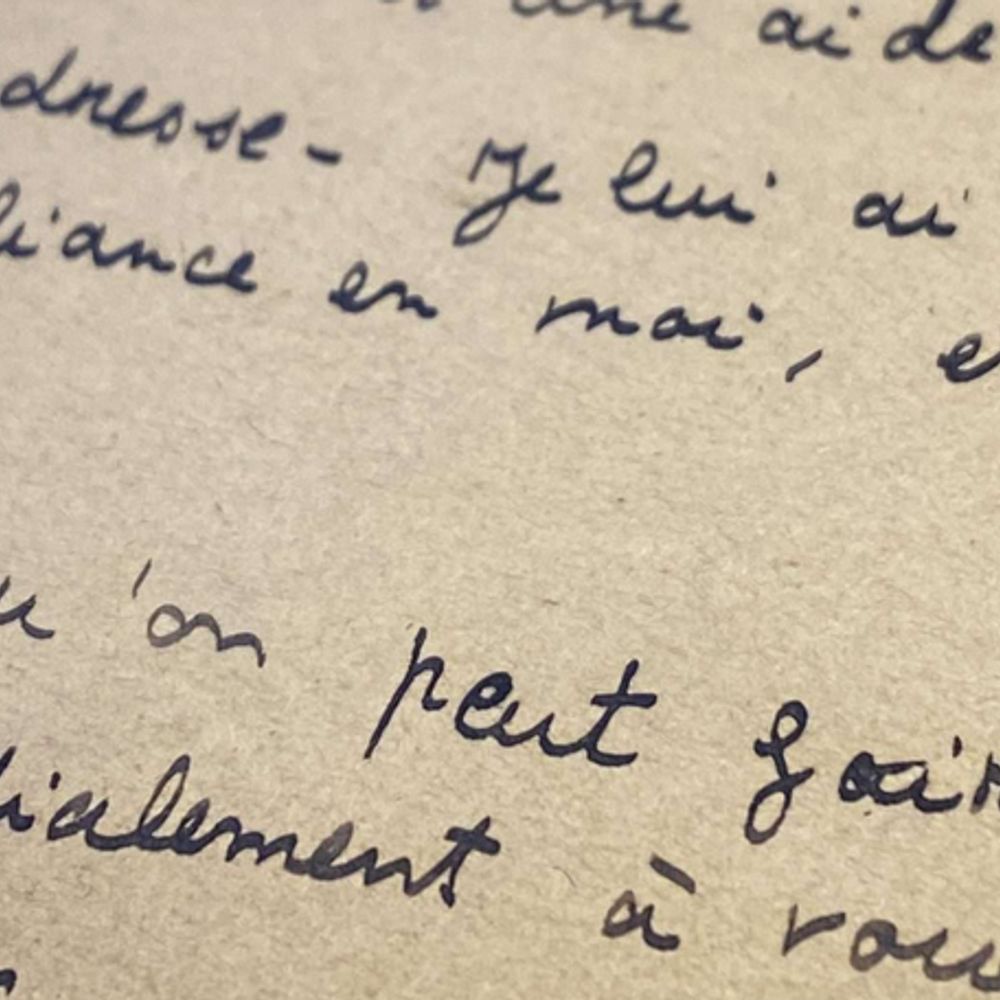 une aide
dresse - Je lui ai
fiance en moi, e
u'on peut fair
dialement à vou